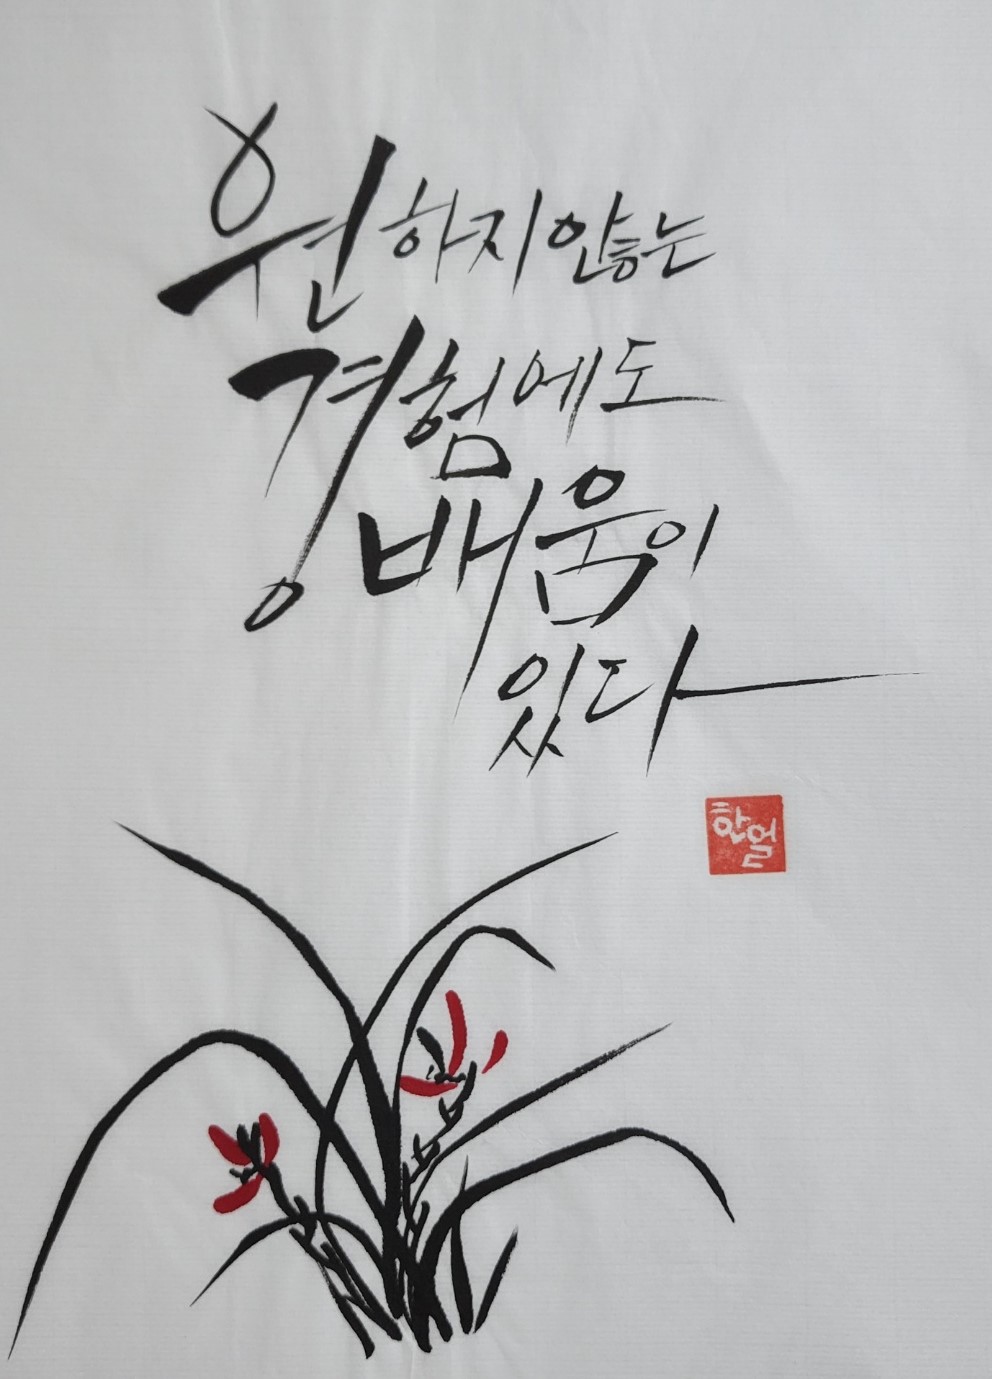 원하지 않는
경험에도
배움이
있다
한얼